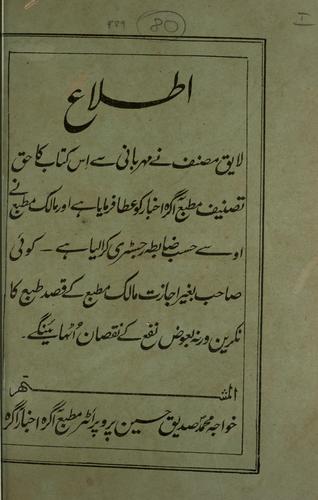 889 80 I
اطلاع
لایق مصنف نے مہربانی سے اس کتاب کا حق
تصنیف مطبع آگرہ اخبار کو عطا فرمایا ہے اور مالک مطبع نے
اوسے حسب ضابطہ رجسٹری کرالیا ہے ۔ کوئی
صاحب بغیر اجازت مالک مطبع کے قصد طبع کا
نکرین ورنہ بعوض نفع کے نقصان اُٹھائینگے ۔
المشتہر
خواجہ محمد صدیق حسین پروپرائٹر مطبع آگرہ اخبار آگرہ